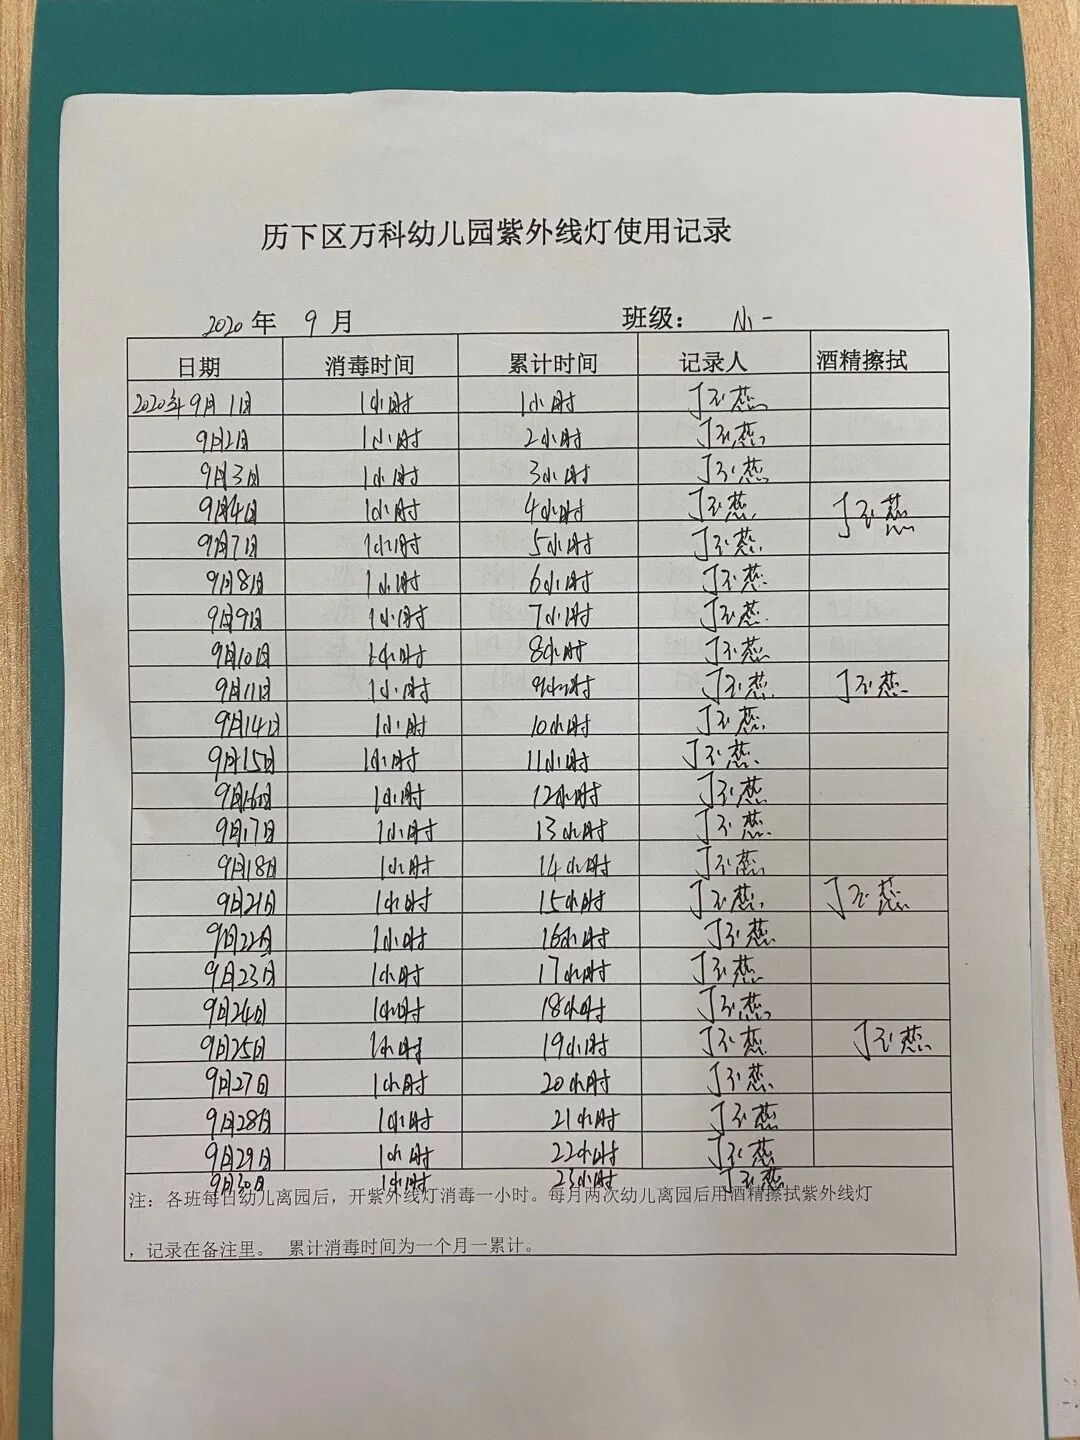 历下区万科幼儿园紫外线灯使用记录
2020年 9 月 班级： 小一
日期 消毒时间 累计时间 记录人 酒精擦拭
2020年9月1日 1小时 1小时 丁玉燕
9月2日 1小时 2小时 丁玉燕
9月3日 1小时 3小时 丁玉燕
9月4日 1小时 4小时 丁玉燕 丁玉燕
9月7日 1小时 5小时 丁玉燕
9月8日 1小时 6小时 丁玉燕
9月9日 1小时 7小时 丁玉燕
9月10日 1小时 8小时 丁玉燕
9月11日 1小时 9小时 丁玉燕 丁玉燕
9月14日 1小时 10小时 丁玉燕
9月15日 1小时 11小时 丁玉燕
9月16日 1小时 12小时 丁玉燕
9月17日 1小时 13小时 丁玉燕
9月18日 1小时 14小时 丁玉燕
9月21日 1小时 15小时 丁玉燕 丁玉燕
9月22日 1小时 16小时 丁玉燕
9月23日 1小时 17小时 丁玉燕
9月24日 1小时 18小时 丁玉燕
9月25日 1小时 19小时 丁玉燕 丁玉燕
9月27日 1小时 20小时 丁玉燕
9月28日 1小时 21小时 丁玉燕
9月29日 1小时 22小时 丁玉燕
9月30日 1小时 23小时 丁玉燕
注：各班每日幼儿离园后，开紫外线灯消毒一小时。每月两次幼儿离园后用酒精擦拭紫外线灯
，记录在备注里。 累计消毒时间为一个月一累计。